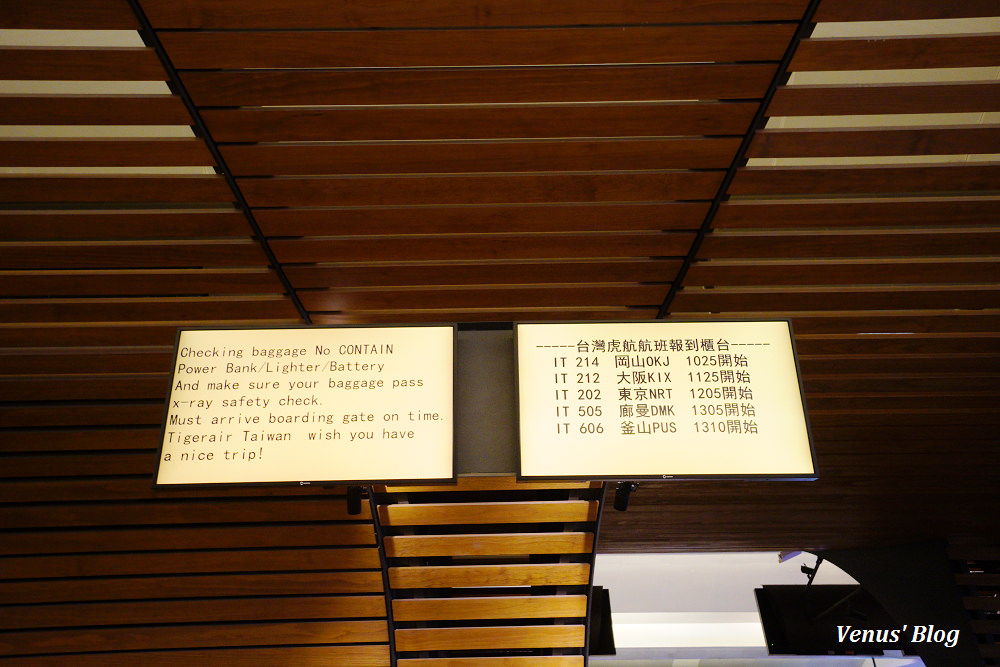 Checking baggage No CONTAIN
Power Bank/Lighter/Battery
And make sure your baggage pass
x-ray safety check.
Must arrive boarding gate on time.
Tigerair Taiwan wish you have
a nice trip!
-----台灣虎航航班報到櫃台-----
IT 214 岡山OKJ 1025開始
IT 212 大阪KIX 1125開始
IT 202 東京NRT 1205開始
IT 505 廊曼DMK 1305開始
IT 606 釜山PUS 1310開始
Venus' Blog